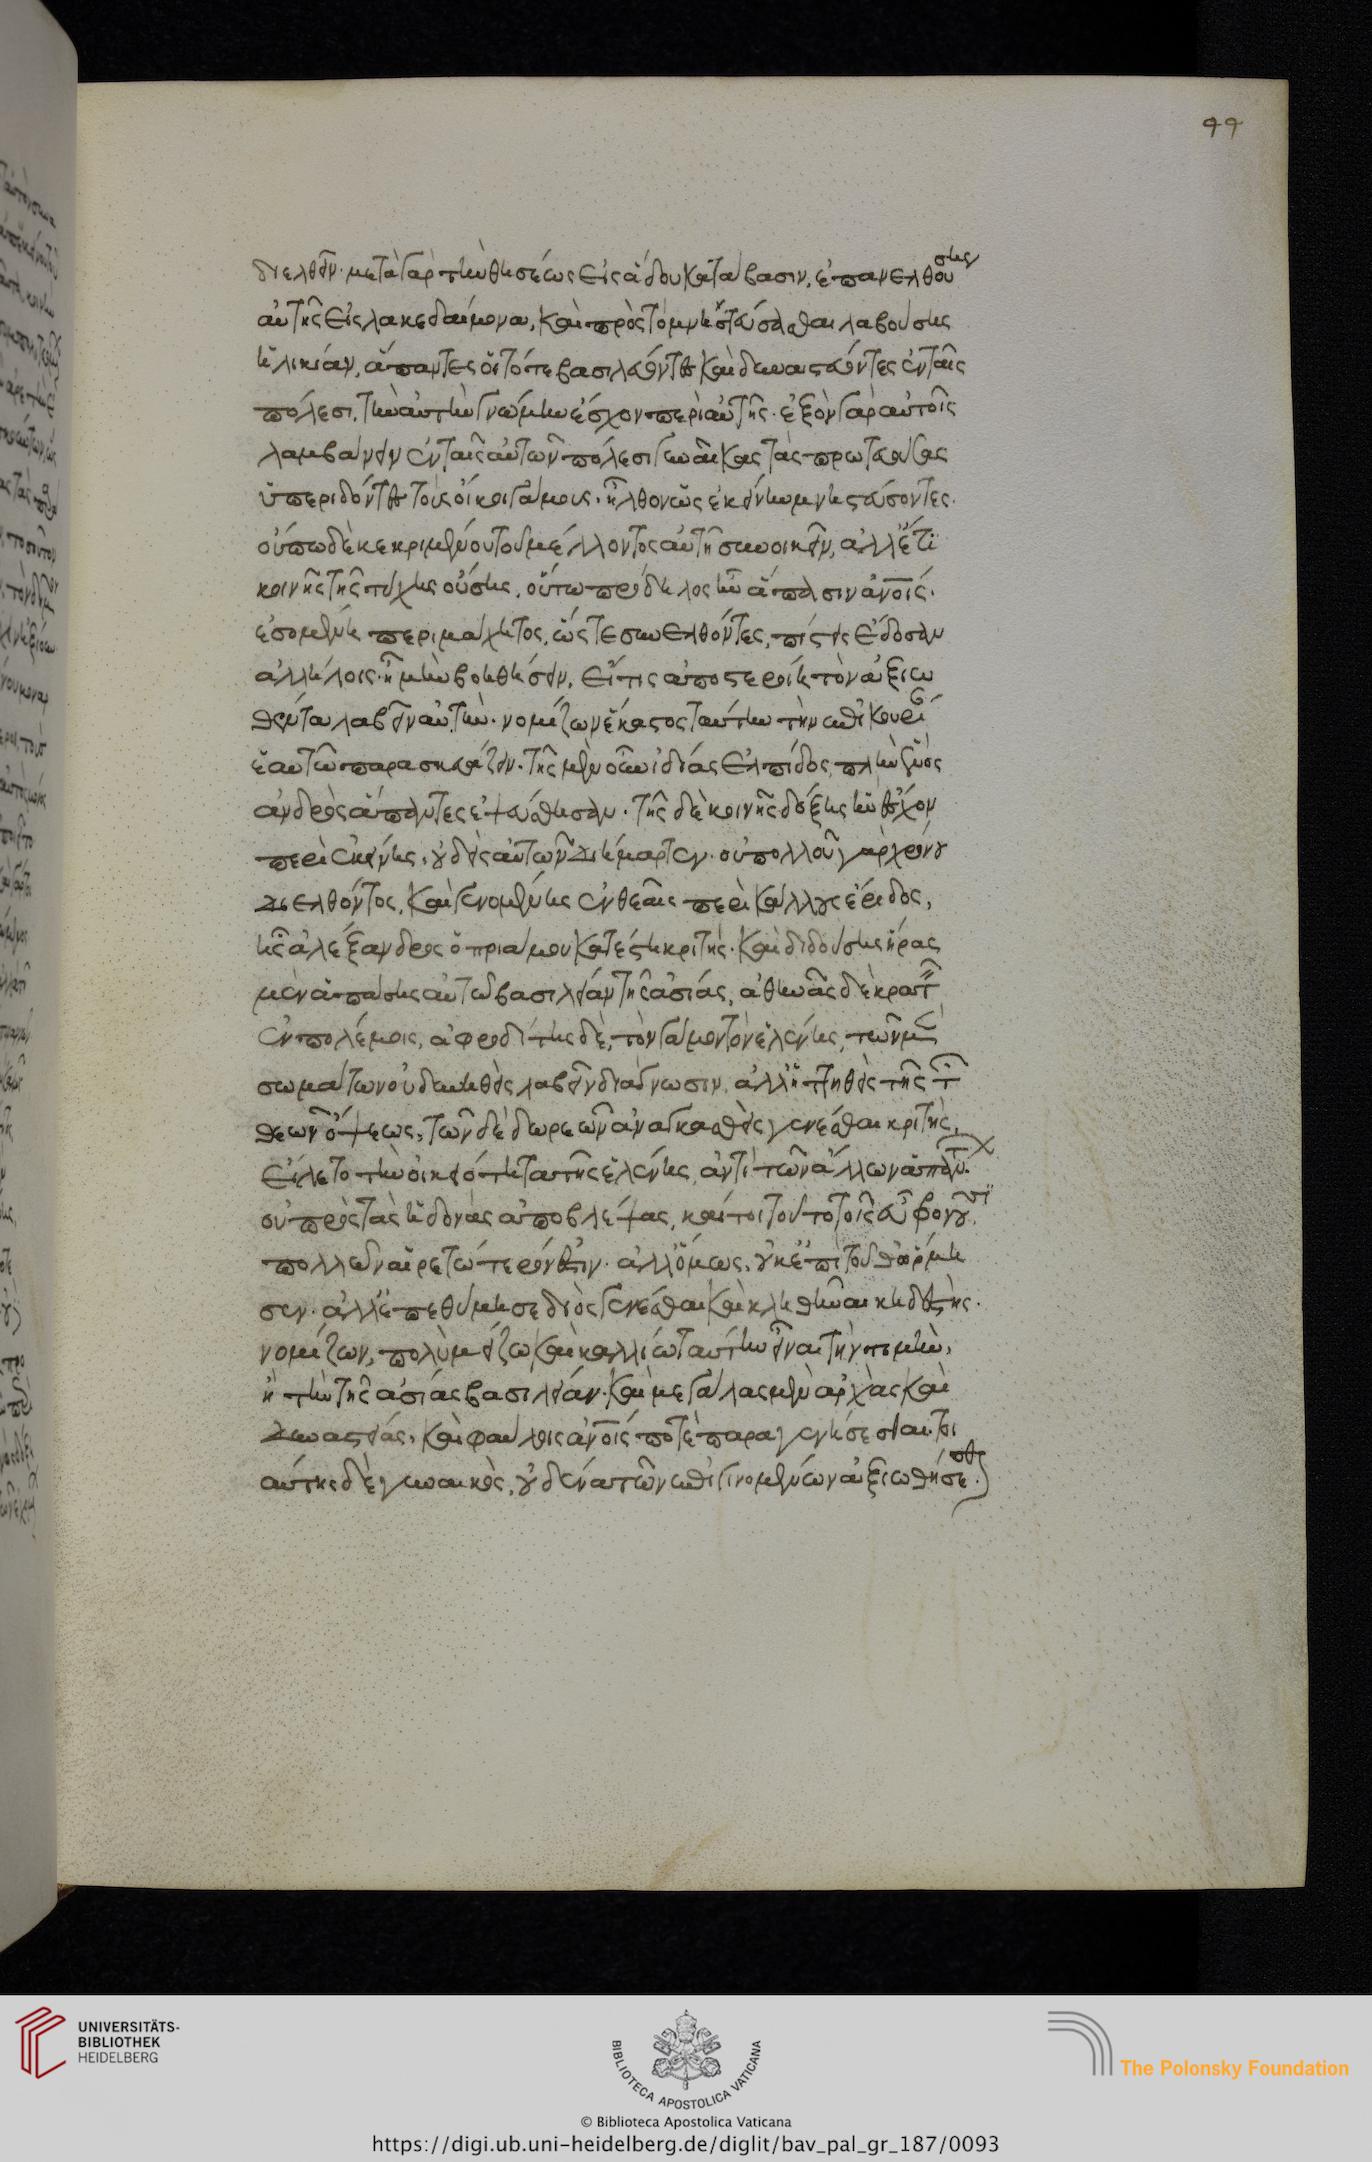 99
διελθεῖν. μετὰ γὰρ τὴν θησέως εἰς ἅδου κατάβασιν, ἐπανελθούσης
αὐτῆς εἰς λακεδαίμονα, καὶ πρὸς τὸ μνηστεύσασθαι λαβούσης
ἡλικίαν, ἅπαντες οἱ τότε βασιλεύοντες καὶ δυναστεύοντες ἐν ταῖς
πόλεσι, τὴν αὐτὴν γνώμην ἔσχον περὶ αὐτῆς. ἐξὸν γὰρ αὐτοῖς
λαμβάνειν ἐν ταῖς αὐτῶν πόλεσι γυναῖκας τὰς πρωτευούσας
ὑπεριδόντες τοὺς οἴκοι γάμους. ἦλθον ὡς ἐκείνην μνηστεύσοντες.
οὔπω δὲ κεκριμένου τοῦ μέλλοντος αὐτῇ συνοικεῖν, ἀλλ' ἔτι
κοινῆς τῆς τύχης οὔσης, οὕτω πρόδηλος ἦν ἅπασιν ἀνοις.
ἐσομένη περιμάχητος, ὥστε συνελθόντες, πίστεις ἔδοσαν
ἀλλήλοις. ἦ μὴν βοηθήσειν, εἴ τις ἀποστεροίη τὸν ἀξιω
θέντα λαβεῖν αὐτήν. νομίζων ἕκαστος ταύτην τὴν ἐπικουρί
ἑαυτῷ παρασκευάζειν. τῆς μὲν οὖν ἰδίας ἐλπίδος, πλὴν ἑνὸς
ἀνδρὸς ἅπαντες ἐψεύσθησαν. τῆς δὲ κοινῆς δόξης ἧς ἔσχον
περὶ ἐκείνης, οὐδεὶς αὐτῶν διήμαρτεν. οὐ πολλοῦ γὰρ χρόνου
διελθόντος, καὶ γενομένης ἐν θεαῖς περὶ κάλλους ἔριδος,
ἧς ἀλέξανδρος ὁ πριάμου κατέστη κριτής. καὶ διδούσης ἥρας
μὲν ἁπάσης αὐτῷ βασιλείαν τῆς ἀσίας, ἀθηνᾶς δὲ κρατεῖν
ἐν πολέμοις, ἀφροδίτης δὲ, τὸν γάμον τὸν ἑλένης, τῶν μὲν
σωμάτων οὐ δυνηθεὶς λαβεῖν διάγνωσιν, ἀλλ' ἡττηθεὶς τῆς τῶν
θεῶν ὄψεως, τῶν δὲ δωρεῶν ἀναγκασθεὶς γενέσθαι κριτὴς,
εἵλετο τὴν οἰκειότητα τῆς ἑλένης, ἀντὶ τῶν ἄλλων ἁπάντων.
οὐ πρὸς τὰς ἡδονὰς ἀποβλέψας, καίτοι τοῦτο τοῖς εὖ φρονοῦσι
πολλῶν αἱρετώτερόν ἐστιν. ἀλλ' ὅμως, οὐκ ἐπὶ τοῦθ' ὥρμη
σεν. ἀλλ' ἐπεθύμησε διὸς γενέσθαι καὶ κληθῆναι κηδεστής.
νομίζων, πολὺ μείζω καὶ καλλίω ταύτην εἶναι τὴν τιμὴν,
ἢ τὴν τῆς ἀσίας βασιλείαν. καὶ μεγάλας μὲν ἀρχὰς καὶ
δυναστείας, καὶ φαύλοις ἀνοις ποτὲ παραγενήσεσθαι. τοι
αύτης δὲ γυναικὸς, οὐδένα τῶν ἐπιγινομένων ἀξιωθήσεσθαι.
UNIVERSITÄTS-
BIBLIOTHEK
HEIDELBERG
BIBLIOTECA APOSTOLICA VATICANA
The Polonsky Foundation
© Biblioteca Apostolica Vaticana
https://digi.ub.uni-heidelberg.de/diglit/bav_pal_gr_187/0093